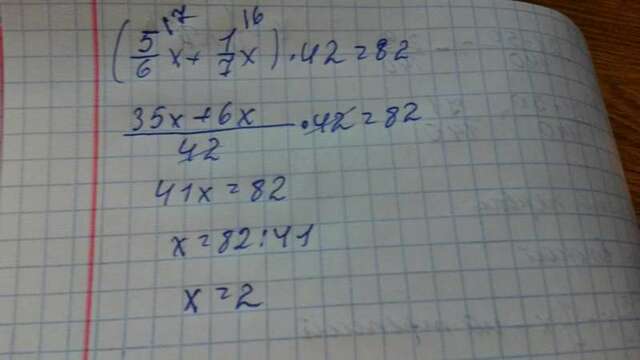 (5/6 ⁷x + 1/7 ⁶x) · 42 = 82
35x + 6x / 42 · 42 = 82
41x = 82
x = 82 : 41
x = 2